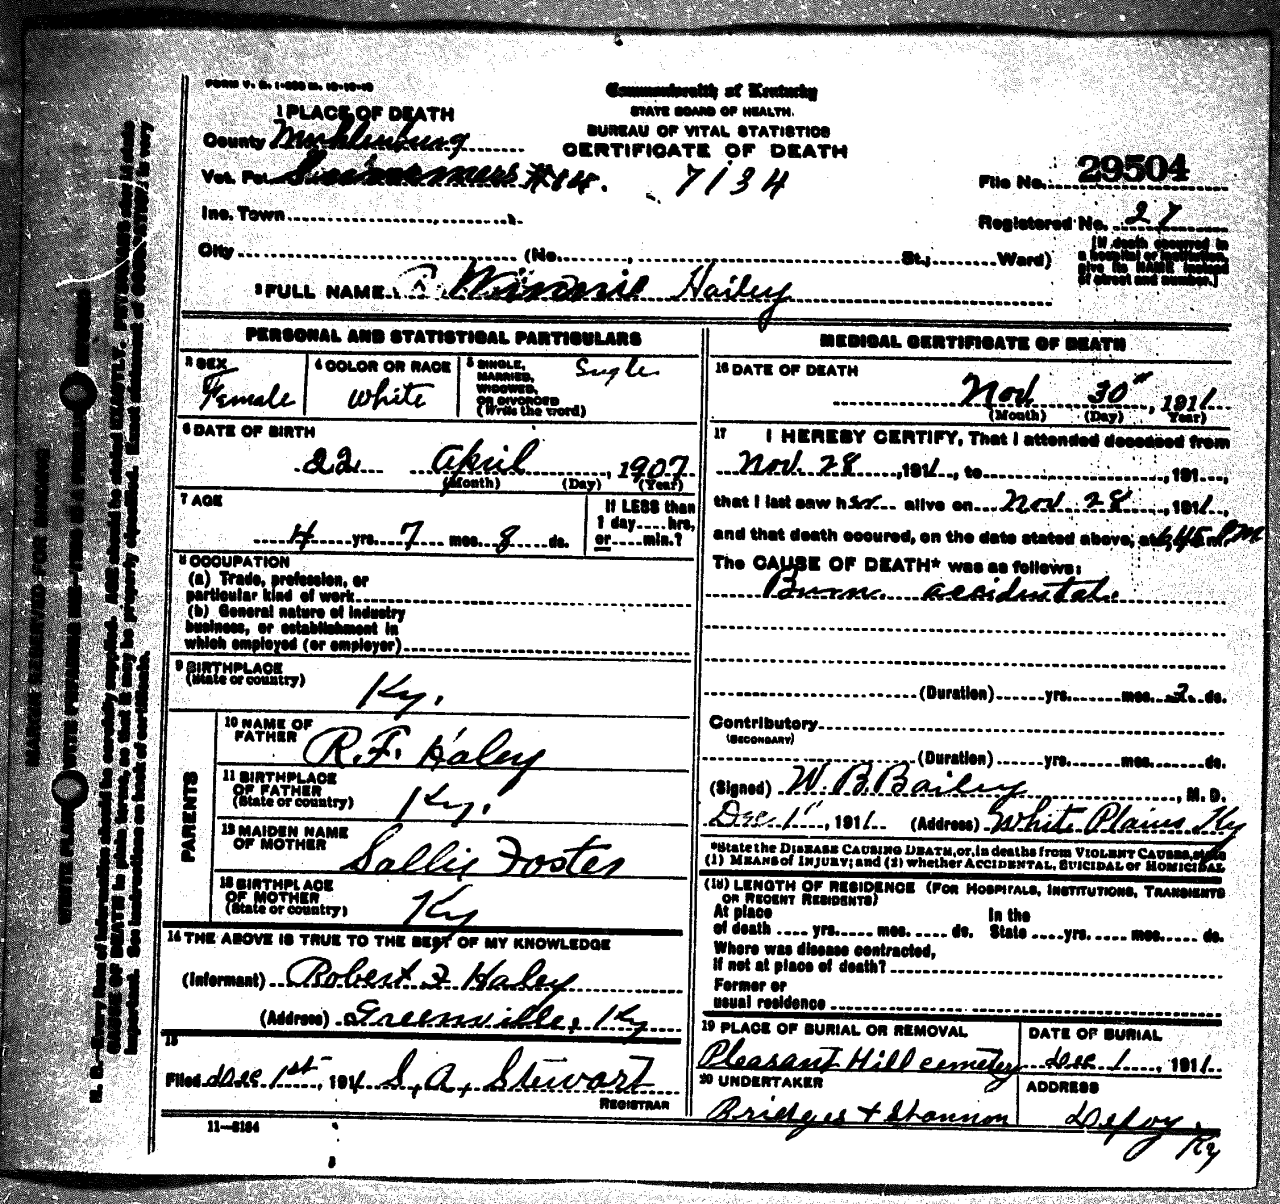 FORM V. S. 1-
Commonwealth of Kentucky
STATE BOARD OF HEALTH.
BUREAU OF VITAL STATISTICS
CERTIFICATE OF DEATH
1 PLACE OF DEATH
County Muhlenburg
Vot. Pct #14. 7134
File No. 29504
Inc. Town
Registered No. 27
City (No. St.; Ward)
[If death occurred in
a hospital or institution,
give its NAME instead
of street and number.]
2 FULL NAME Winnie Hailey
PERSONAL AND STATISTICAL PARTICULARS
3 SEX
Female
4 COLOR OR RACE
White
5 SINGLE,
MARRIED,
WIDOWED,
OR DIVORCED
(Write the word)
Sugle
6 DATE OF BIRTH
22 April, 1907
(Month) (Day) (Year)
7 AGE
4 yrs. 7 mos. 8 ds.
If LESS than
1 day hrs,
or min.?
8 OCCUPATION
(a) Trade, profession, or
particular kind of work
(b) General nature of industry
business, or establishment in
which employed (or employer)
9 BIRTHPLACE
(State or country)
Ky.
PARENTS
10 NAME OF
FATHER
R.F. Haley
11 BIRTHPLACE
OF FATHER
(State or country)
Ky.
12 MAIDEN NAME
OF MOTHER
Sallie Foster
13 BIRTHPLACE
OF MOTHER
(State or country)
Ky
14 THE ABOVE IS TRUE TO THE BEST OF MY KNOWLEDGE
(Informant) Robert F Haley
(Address) Greenville, Ky
15
Filed Dec 1st, 1911 S. A. Stewart
REGISTRAR
11—3184
MEDICAL CERTIFICATE OF DEATH
16 DATE OF DEATH
Nov 30", 1911
(Month) (Day) (Year)
17 I HEREBY CERTIFY, That I attended deceased from
Nov. 28, 1911, to, 191
that I last saw her alive on Nov 28, 1911,
and that death occured, on the date stated above, at 6,45 P.M
The CAUSE OF DEATH* was as follows:
Burn accidental.
(Duration) yrs. mos. 2 ds.
Contributory
(SECONDARY)
(Duration) yrs. mos. ds.
(Signed) W. B. Bailey, M. D.
Dec. 1", 1911 (Address) White Plains Ky
*State the DISEASE CAUSING DEATH, or, in deaths from VIOLENT CAUSES, state
(1) MEANS OF INJURY; and (2) whether ACCIDENTAL, SUICIDAL or HOMICIDAL
(18) LENGTH OF RESIDENCE (FOR HOSPITALS, INSTITUTIONS, TRANSIENTS
OR RECENT RESIDENTS)
At place
of death yrs. mos. ds.
In the
State yrs. mos. ds.
Where was disease contracted,
if not at place of death?
Former or
usual residence
19 PLACE OF BURIAL OR REMOVAL
Pleasant Hill cemetey
DATE OF BURIAL
Dec 1, 1911.
20 UNDERTAKER
Bridges & Shannon
ADDRESS
Depoy Ky
MARGIN RESERVED FOR BINDING
N. B.—Every item of information should be carefully supplied. AGE should be stated EXACTLY. PHYSICIANS should state
CAUSE OF DEATH in plain terms, so that it may be properly classified. Exact statement of OCCUPATION is very
important. See instructions on back of certificate.